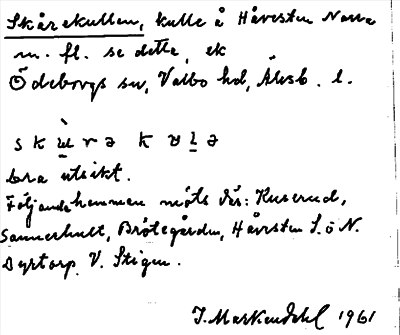 Skårekullen, kulle å Håvesten Norra
m. fl. se detta, ek
Ödeborgs sn, Valbo hd, Älvsb. l.
s k ù r ə k u l ə
bra utsikt.
Följande hemman möts där: Kuserud,
Sannerhult, Brötegården, Håvesten S. o N.
Dyrtorp V. Stigen.
J. Markendahl 1961